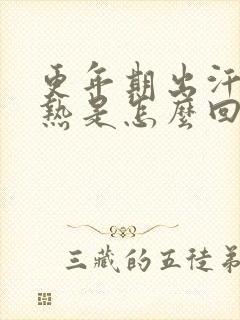 更年期出汗
熱是怎麼回
三藏的五徒弟